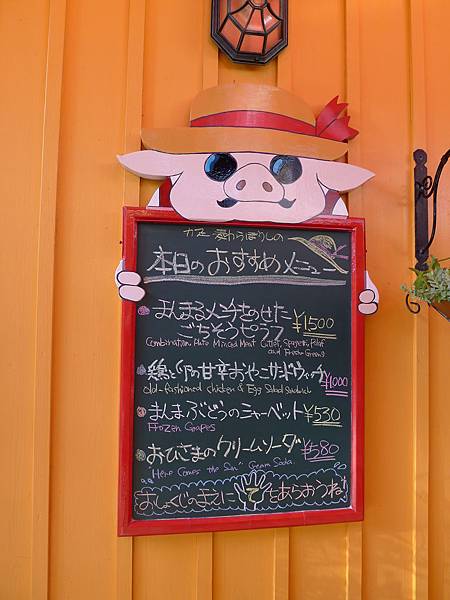 カフェ 麦わらぼうしの
本日のおすすめメニュー
まんまるメンチをのせた
ごちそうピラフ ¥1,500
Combination Plate Minced Meat Cutlet, Spagetti, Pilaf
and Fresh Greens
鶏と卵の甘辛おやこサンドウィッチ ¥1000
old-fashioned chicken & Egg Salad Sandwich
まんまぶどうのシャーベット ¥530
Frozen Grapes
おひさまのクリームソーダ ¥580
"Here Comes the Sun" Cream Soda
おしょくじのまえに て をあらおうね!